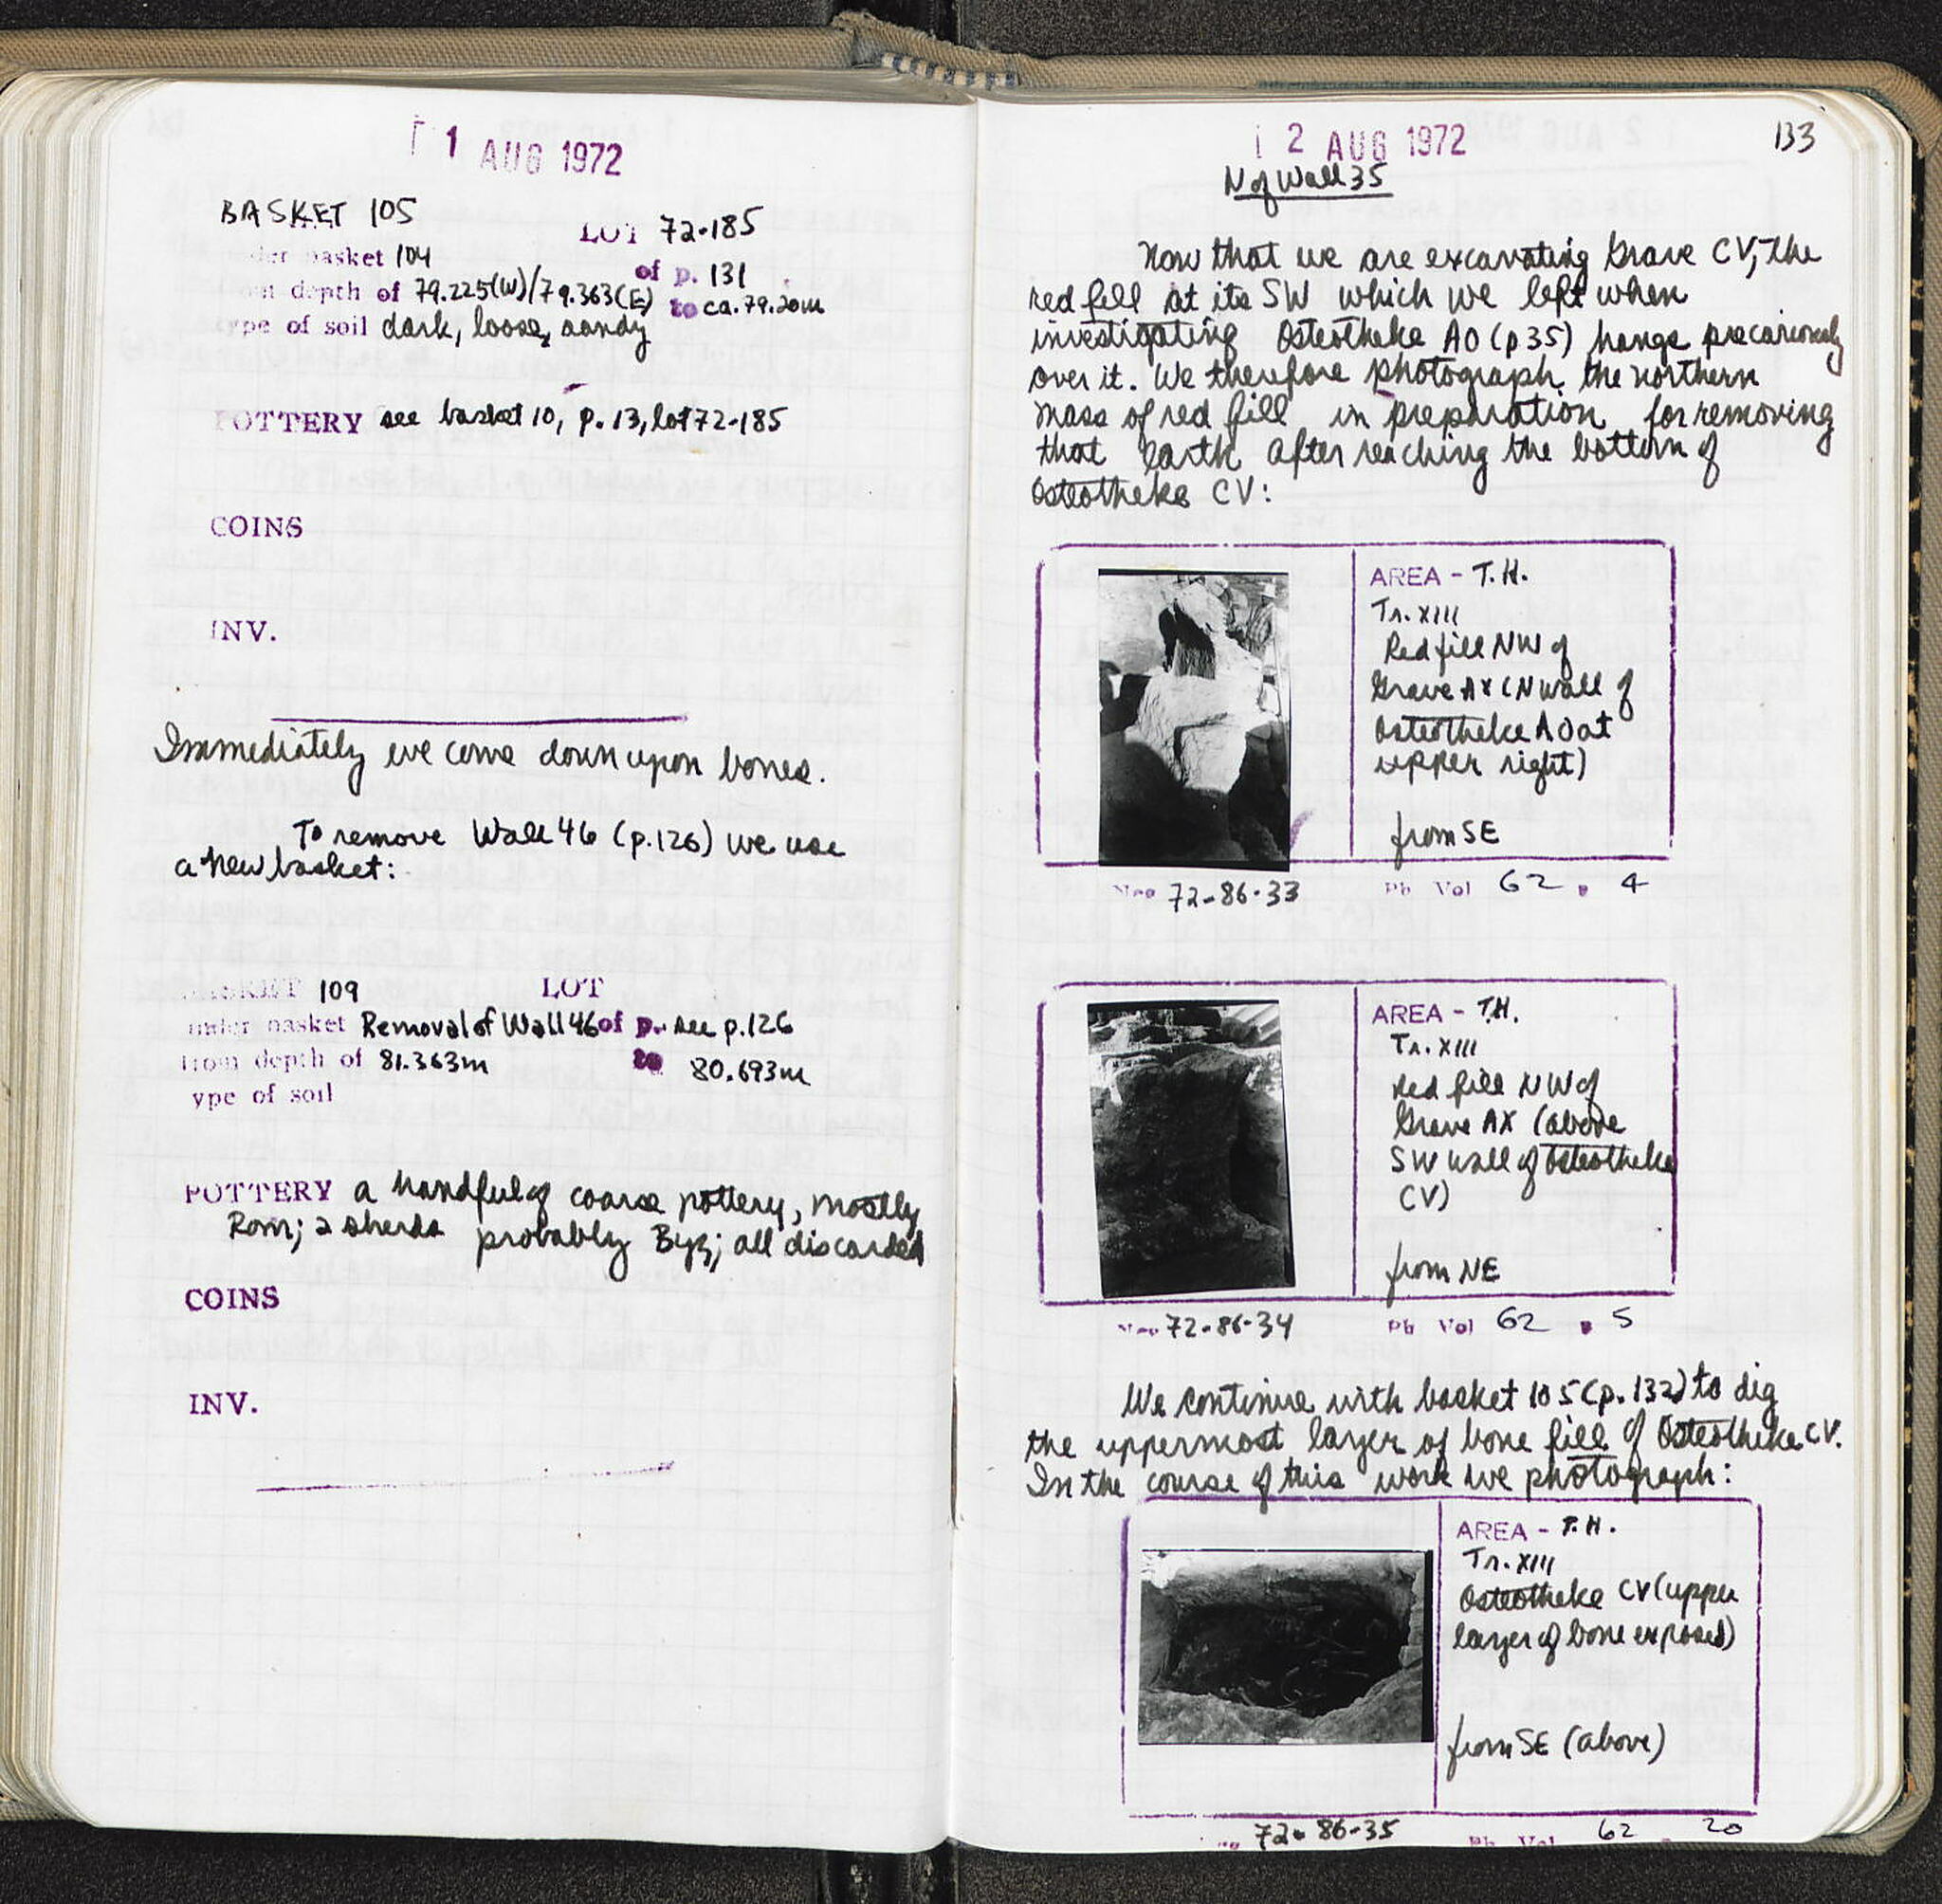 1 AUG 1972
BASKET 105 LOT 72-185
under basket 104 of p. 131
from depth of 79.225(W)/79.363(E) to ca. 79.20m
type of soil dark, loose, sandy
POTTERY see basket 10, p. 13, lot 72-185
COINS
INV.
Immediately we come down upon bones.
To remove Wall 46 (p.126) we use
a new basket:
BASKET 109 LOT
under basket Removal of Wall 46 of p. see p.126
from depth of 81.363m to 80.693m
ype of soil
POTTERY a handful of coarse pottery, mostly
Rom; 2 sherds probably Byz; all discarded
COINS
INV.
2 AUG 1972
133
N of Wall 35
Now that we are excavating Grave CV, the
red fill at its SW which we left when
investigating Osteotheke AO (p35) hangs precariously
over it. We therefore photograph the northern
mass of red fill in preparation for removing
that earth after reaching the bottom of
Osteotheke CV:
AREA - T.H.
Tr. XIII
Red fill NW of
Grave AX (N wall of
Osteotheke AO at
upper right)
from SE
Neg 72-86-33 Ph Vol 62 p 4
AREA - T.H.
Tr. XIII
Red fill NW of
Grave AX (above
SW wall of Osteotheke
CV)
from NE
Neg 72-86-34 Ph Vol 62 p 5
We continue with basket 105 (p. 132) to dig
the uppermost layer of bone fill of Osteotheke CV.
In the course of this work we photograph:
AREA - T.H.
Tr. XIII
Osteotheke CV (upper
layer of bone exposed)
from SE (above)
72-86-35 Ph Vol 62 20